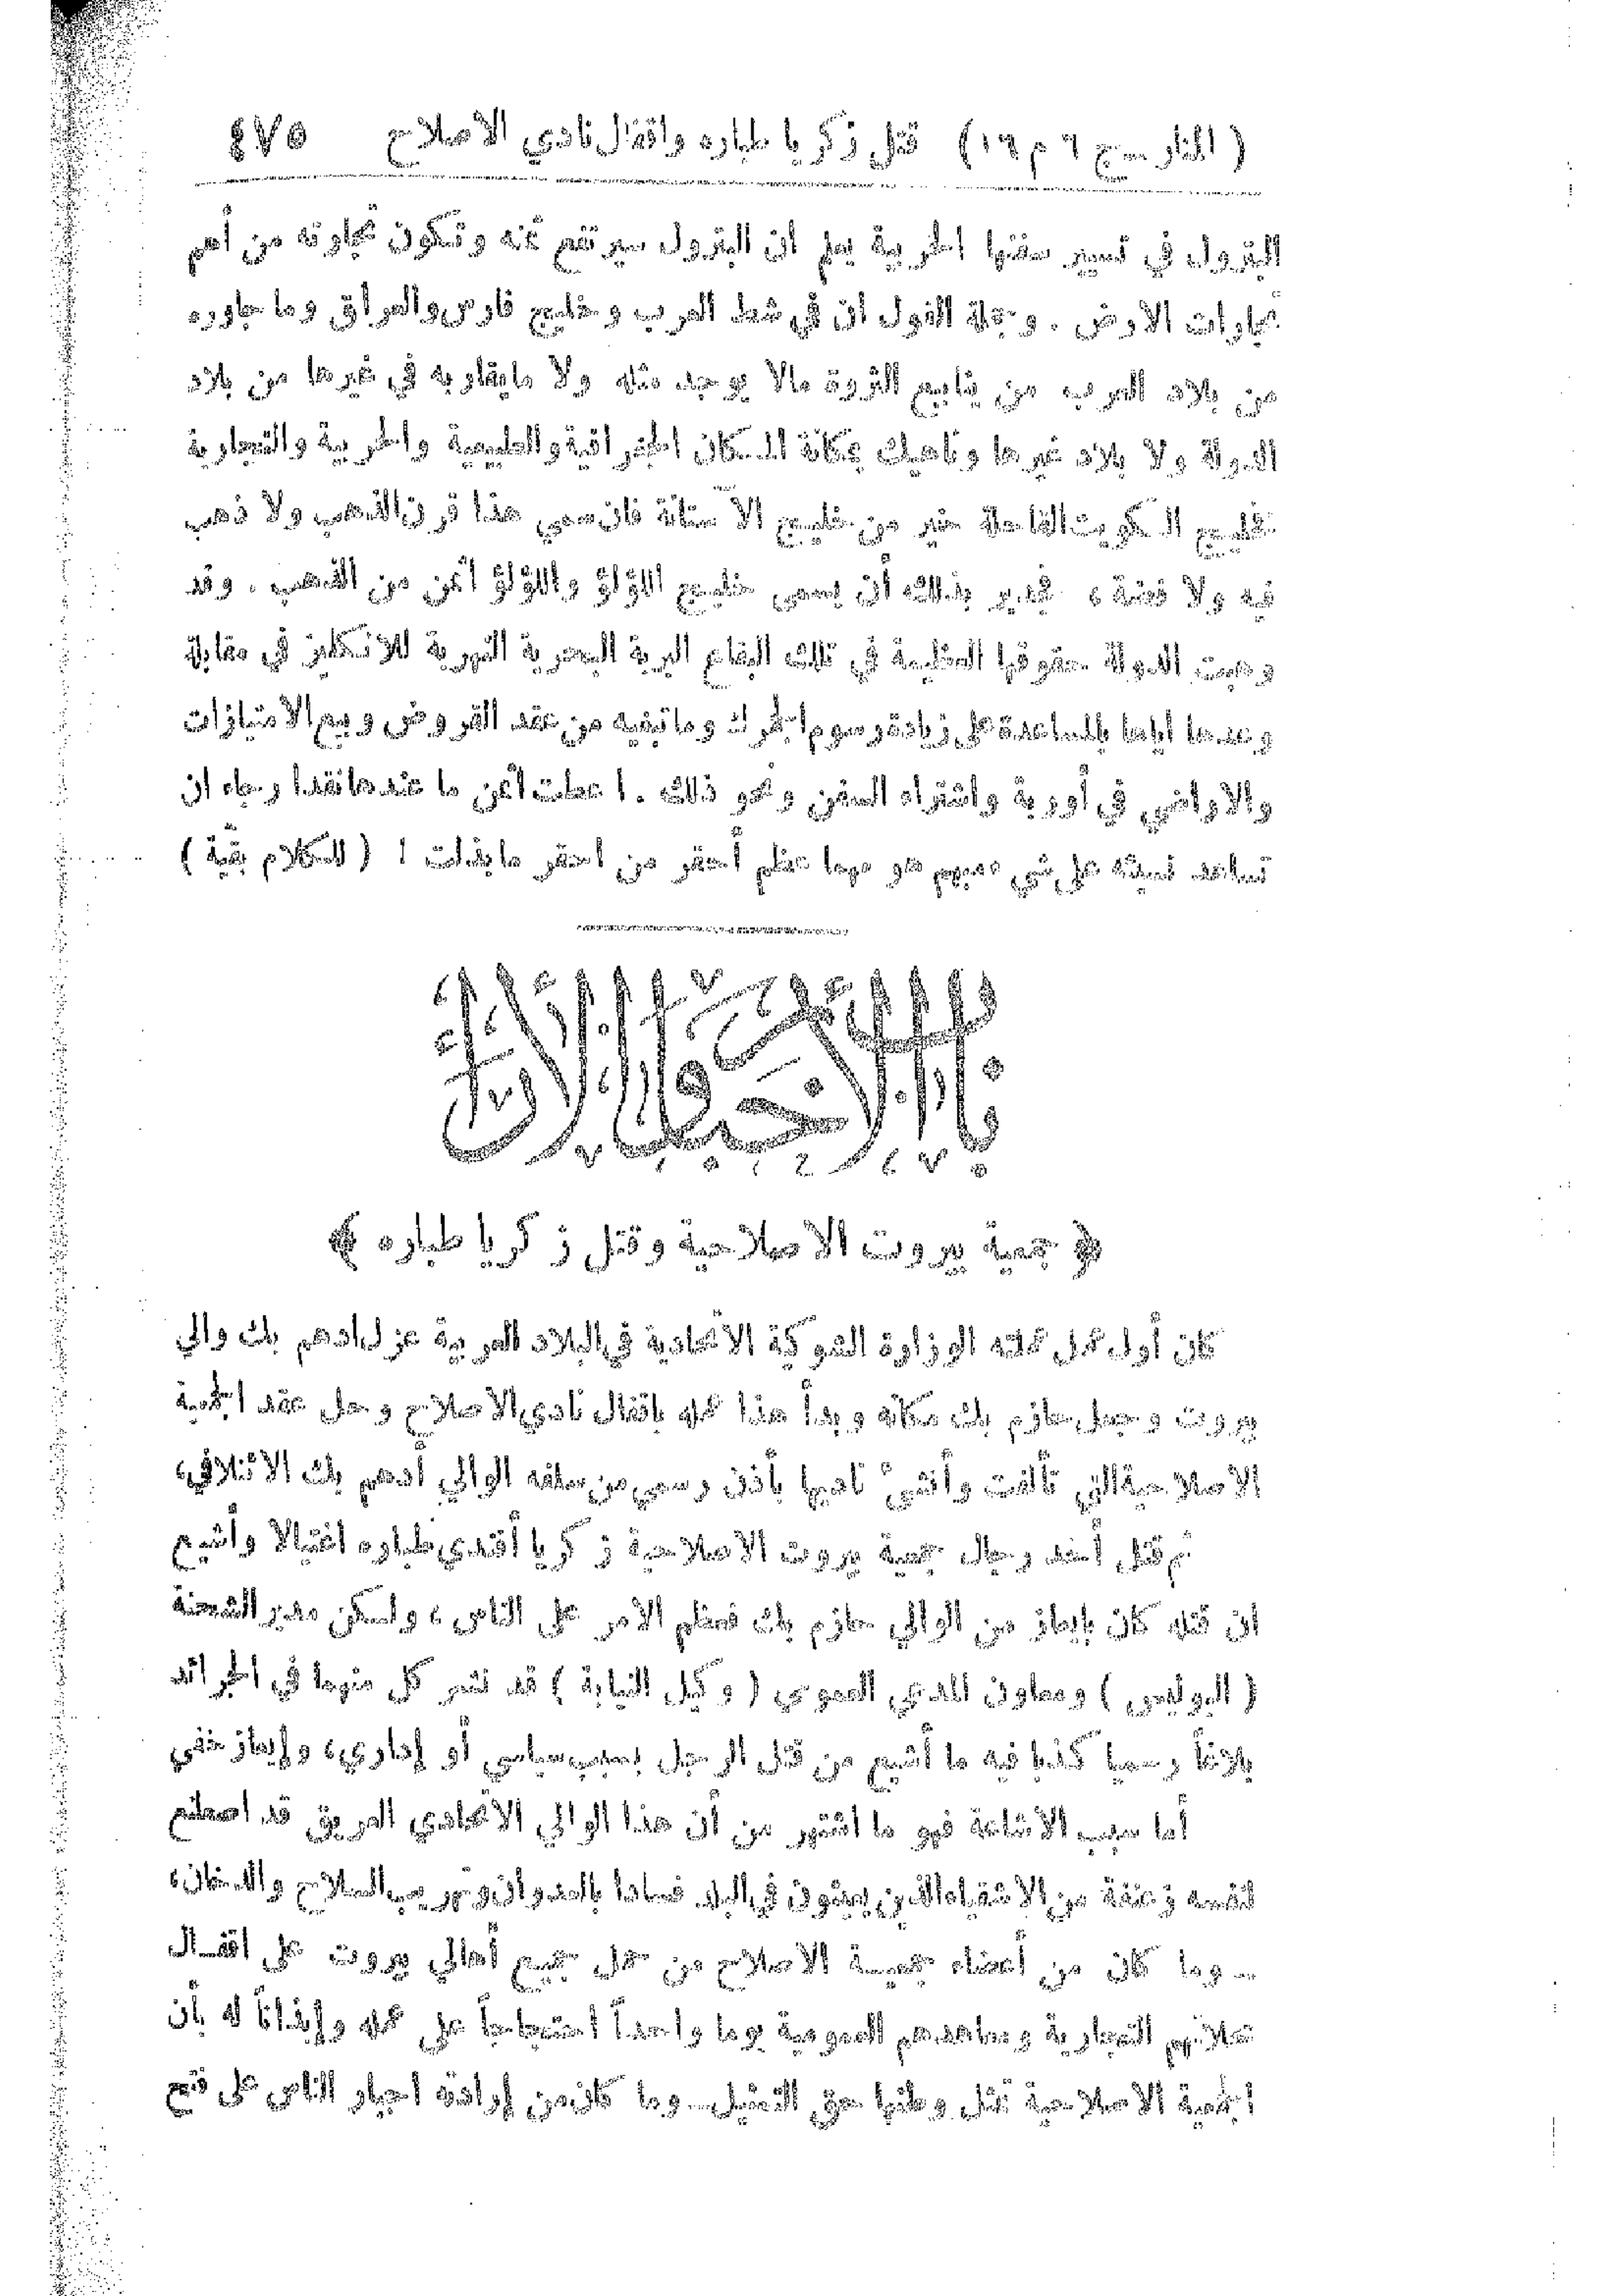 ( المنار ـ ج ٦ م ١٦ ) قتل زكريا طباره واقفال نادي الاصلاح ٤٧٥
البترول في تسيير سفنها الحربية يعلم ان البترول سيرتفع ثمنه وتكون تجارته من أهم
تجارات الارض . وجملة القول ان في شط العرب وخليج فارس والعراق وما جاوره
من بلاد العرب من ينابيع الثروة مالا يوجد مثله ولا مايقاربه في غيرها من بلاد
الدولة ولا بلاد غيرها وناهيك بمكانة المكان الجغرافية والطبيعية والحربية والتجارية
فخليج الكويت القاحلة خير من خليج الآستانة فان سمي هذا قرن الذهب ولا ذهب
فيه ولا فضة ، فجدير بذلك أن يسمى خليج اللؤلؤ واللؤلؤ أثمن من الذهب . وقد
وهبت الدولة حقوقها العظيمة في تلك البقاع البرية البحرية النهرية للانكليز في مقابلة
وعدها اياها بالمساعدة على زيادة رسوم الجمرك وما تبغيه من عقد القروض وبيع الامتيازات
والاراضي في أوربة واشتراء السفن ونحو ذلك . اعطت أثمن ما عندها نقدا رجاء ان
تساعد نسيئة على شيء مبهم هو مهما عظم أحقر من احقر ما بذلت ! ( للكلام بقية )
باب الاخبار والآراء
﴿ جمعية بيروت الاصلاحية وقتل زكريا طباره ﴾
كان أول عمل عملته الوزارة الشوكية الاتحادية في البلاد العربية عزل ادهم بك والي
بيروت وجعل حازم بك مكانه وبدأ هذا عمله باقفال نادي الاصلاح وحل عقد الجمعية
الاصلاحية التي تألفت وأنشئ ناديها بأذن رسمي من سلفه الوالي أدهم بك الائتلافي ،
ثم قتل أحد رجال جمعية بيروت الاصلاحية زكريا أفندي طباره اغتيالا وأشيع
ان قتله كان بإيعاز من الوالي حازم بك فعظم الامر على الناس ، ولكن مدير الشحنة
( البوليس ) ومعاون المدعي العمومي ( وكيل النيابة ) قد نشر كل منهما في الجرائد
بلاغاً رسميا كذبا فيه ما أشيع من قتل الرجل بسبب سياسي أو إداري ، وإيعاز خفي
أما سبب الاشاعة فهو ما اشتهر من أن هذا الوالي الاتحادي العريق قد اصطنع
لنفسه زعنفة من الاشقياء الذين يعيثون في البلد فسادا بالعدوان وتهريب السلاح والدخان ،
ـ وما كان من أعضاء جمعيـة الاصلاح من حمل جميع أهالي بيروت على اقفـال
محلاتهم التجارية ومعاهدهم العمومية يوما واحداً احتجاجاً على عمله وإيذاناً له بأن
الجمعية الاصلاحية تمثل وطنها حق التمثيل ـ وما كان من إرادته اجبار الناس على فتح